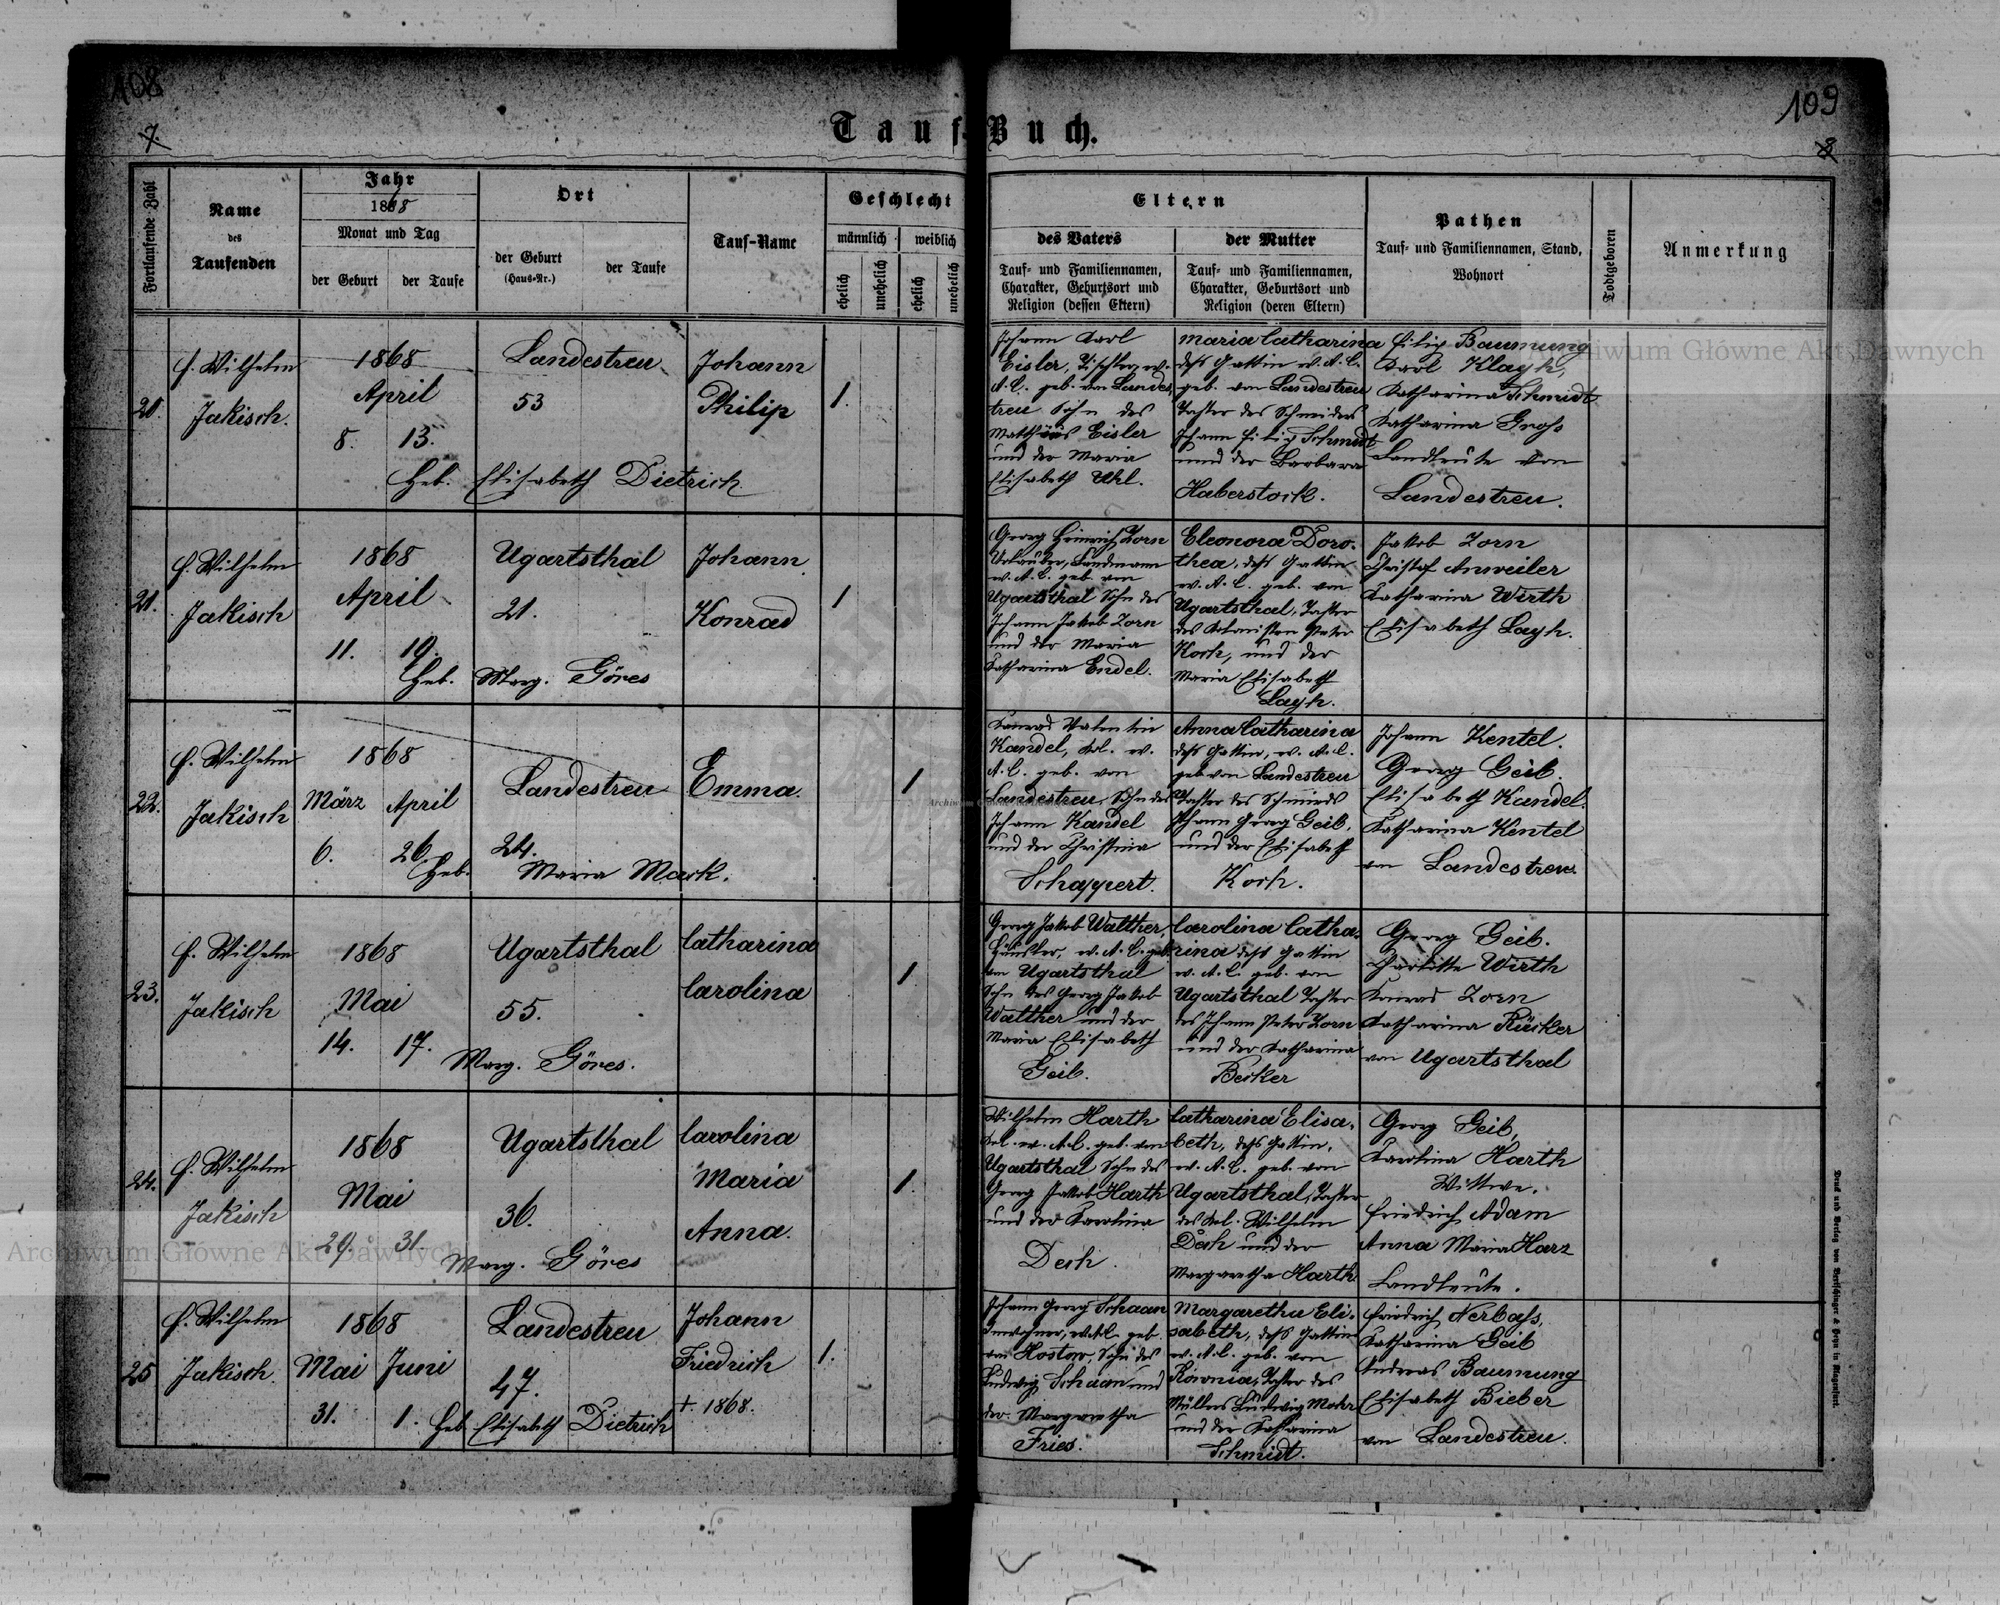 108
109
7
8
Tauf-Buch.
Fortlaufende Zahl
Name
des
Taufenden
Jahr
1868
Monat und Tag
der Geburt
der Taufe
Ort
der Geburt
(Haus-Nr.)
der Taufe
Tauf-Name
Geschlecht
männlich
weiblich
ehelich
unehelich
ehelich
unehelich
Eltern
des Vaters
Tauf- und Familiennamen,
Charakter, Geburtsort und
Religion (dessen Eltern)
der Mutter
Tauf- und Familiennamen,
Charakter, Geburtsort und
Religion (deren Eltern)
Pathen
Tauf- und Familiennamen, Stand,
Wohnort
Todtgeboren
Anmerkung
20.
f. Wilhelm
Jakisch.
1868
April
8. 13.
Landestreu
53
Heb. Elisabeth Dietrich
Johann
Philip
1.
Johann Karl
Eisler, Tischler, ev.
A.C. geb. von Landes-
treu Sohn des
Matthäus Eisler
und der Maria
Elisabeth Uhl.
Maria Catharina
dess Gattin ev. A.C.
geb. von Landestreu
Tochter des Schneiders
Johann Filip Schmidt
und der Barbara
Haberstock.
Filip Baumung
Karl Klayh,
Katharina Schmidt
Katharina Gross
Landleute von
Landestreu.
21.
f. Wilhelm
Jakisch
1868
April
11. 19.
Ugartsthal
21.
Heb. Marg. Göres
Johann
Konrad
1
Georg Heinrich Zorn
Urlauber, Landmann
ev. A.C. geb. von
Ugartsthal Sohn des
Johann Jakob Zorn
und der Maria
Katharina Endel.
Eleonora Doro-
thea, dess Gattin
ev. A.C. geb. von
Ugartsthal, Tochter
des Kolonisten Peter
Koch, und der
Maria Elisabeth
Layh.
Jakob Zorn
Christof Anweiler
Katharina Wirth
Elisabeth Layh.
22.
f. Wilhelm
Jakisch
1868
März April
6. 26.
Landestreu
24.
Heb. Maria Mark.
Emma.
1
Konrad Valentin
Kandel, Kol. ev.
A.C. geb. von
Landestreu, Sohn des
Johann Kandel
und der Christina
Schappert.
Anna Catharina
dess Gattin, ev. A.C.
geb von Landestreu
Tochter des Schmieds
Johann Georg Geib,
und der Elisabeth
Koch.
Johann Kentel.
Georg Geib.
Elisabeth Kandel.
Katharina Kentel
von Landestreu.
23.
f. Wilhelm
Jakisch
1868
Mai
14. 17.
Ugartsthal
55.
Marg. Göres.
Catharina
Carolina
1
Georg Jakob Walther,
Häusler, ev. A.C. geb.
von Ugartsthal
Sohn des Georg Jakob
Walther und der
Maria Elisabeth
Geib.
Carolina Catha-
rina dess Gattin
ev. A.C. geb. von
Ugartsthal Tochter
des Johann Peter Zorn
und der Katharina
Becker
Georg Geib.
Charlotte Wirth
Konrad Zorn
Katharina Rücker
von Ugartsthal
24.
f. Wilhelm
Jakisch
1868
Mai
29. 31.
Ugartsthal
36.
Marg. Göres
Carolina
Maria
Anna.
1.
Wilhelm Harth
Kol. ev. A.C. geb. von
Ugartsthal Sohn des
Georg Jakob Harth
und der Karolina
Desh.
Catharina Elisa-
beth, dess Gattin,
ev. A.C. geb. von
Ugartsthal, Tochter
des Kol. Wilhelm
Desh und der
Margaretha Harth
Georg Geib,
Karolina Harth
Wittwe.
Friedrich Adam
Anna Maria Harz
Landleute.
25
f. Wilhelm
Jakisch.
1868
Mai Juni
31. 1.
Landestreu
47.
Heb Elisabeth Dietrich
Johann
Friedrich
+ 1868.
1.
Johann Georg Schaan
Inwohner, ev. A.C. geb.
von Hostow, Sohn des
Ludwig Schaan und
der Margaretha
Fries.
Margaretha Eli-
sabeth, dess Gattin
ev. A.C. geb. von
Rownia, Tochter des
Müllers Ludwig Mohr
und der Katharina
Schmidt.
Friedrich Nerbass,
Katharina Geib
Andreas Baumung
Elisabeth Bieber
von Landestreu.
Archiwum Główne Akt Dawnych
Archiwum Główne Akt Dawnych